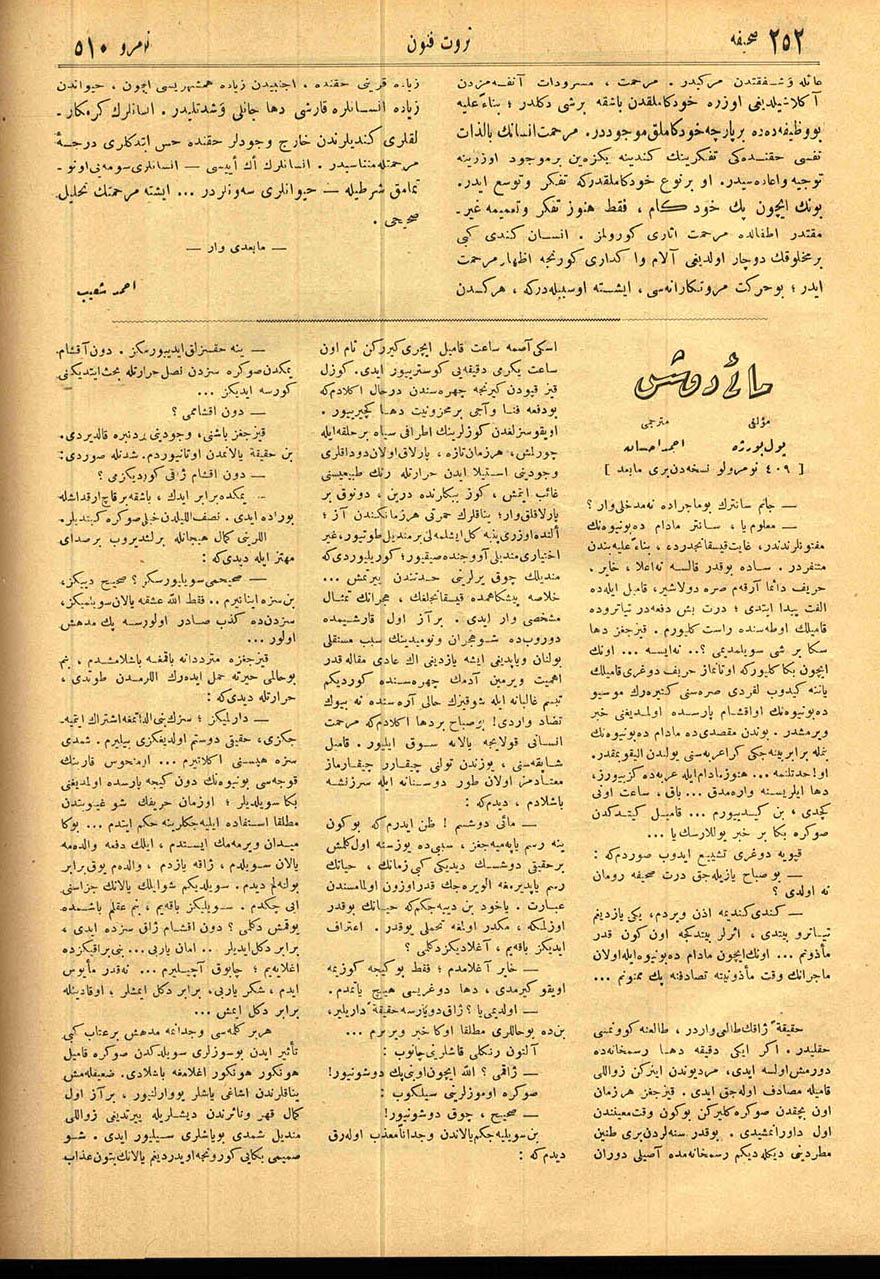 صحیفه ٢٥٢
ثروت فنون
نومرو ٥١٠
عائله و شفقتدن مرکبدر . مرحمت ، مسرودات آنفه مزدن
آکلاشیلدیغی اوزره خودکاملقدن باشقه برشی دکلدر ؛ بناءً علیه
بووظیفه ده ده بر پارچه خودکاملق موجوددر. مرحمت انسانك بالذات
نفسی حقنده کی تفکرینك کندینه بکزه ین بر موجود اوزرینه
توجیه و اعاده سیدر. او بر نوع خودکاملقدرکه تفکر و توسع ایدر.
بونك ایچون پك خود کام ، فقط هنوز تفکر و تعمیمه غیر ـ
مقتدر اطفالده مرحمت اثاری کورولمز . انسان کندی کبی
بر مخلوقك دوچار اولدیغی آلام و اکداری کورنجه اظهار مرحمت
ایدر ؛ بو حرکت مروتکارانه سی ، ایشته اوسبیله درکه ، هرکسدن
زیاده قرینی حقنده ، اجنبیدن زیاده همشهریسی ایچون ، حیواندن
زیاده انسانلره قارشی دها جانلی و شدتلیدر. انسانلرك کرمکار ـ
لقلری کندیلرندن خارج وجودلر حقنده حس ایتدکلری درجهٔ
مرحمتله متناسبدر. انسانلرك اك أییسی — انسانلری سومه یی اونو ـ
تمامق شرطیله — حیوانلری سه ونلردر ... ایشته مرحمتك تحلیل
صحیحی .
— مابعدی وار —
احمد شعیب
مائی دوشس
مؤلفی
مترجمی
پول بورژه
احمد احسان
[ ٤٠٩ نومرولو نسخه دن بری مابعد ]
— جانم سانترك بوماجراده نه مدخلی وار ؟
— معلوم یا ، سانتر مادام ده بونیوه نك
مفتونلرندندر، غایت قیسقانجدرده ، بناءً علیه بندن
متنفردر . ساده بوقدر قالسه نه اعلا ، خایر .
حریف دائما آرقه م صره دولاشیر، قامیل ایله ده
الفت پیدا ایتدی ؛ درت بش دفعه در تیاتروده
قامیلك اوطه سنده راست کلیورم . قیزجغز دها
سکا بر شی سویلمدیمی ؟.. نه ایسه ... اونك
ایچون بکا کلیورکه اوتانماز حریف دوغری قامیلك
یاننه کیدوب لقردی صره سنی کتیره رك موسیو
ده بونیوه نك اواقشام پارسده اولمدیغنی خبر
ویرمشدر . بوندن مقصدی ده مادام ده بونیوه نك
بنمله برابر بینه جکی کرا عربه سنی یولدن الیقویمقدر.
او احدتلنمه ... هنوز مادام ایله عربه ده کزییورز،
دها ایلریسنه واره مدق ... باق ، ساعت اونی
کچدی ، بن کیدییورم ... قامیل کیتدکدن
صوکره بکا بر خبر یوللارسك یا ...
قپویه دوغری تشییع ایدوب صوردم که :
— بو صباح یازیله جق درت صحیفه رومان
نه اولدی ؟
— کندی کندیمه اذن ویردم، یکی یازدیغم
تیاترو بیتدی ، اثرلر بیتدکجه اون کون قدر
مأذونم ... اونك ایچون مادام ده بونیوه ایله اولان
ماجرانك وقت مأذونیته تصادفنه پك ممنونم ...
حقیقةً ژاقك طالعی واردر ، طالعنه کوونمشی
حقلیدر. اکر ایکی دقیقه دها رسمخانه ده
دورمش اولسه ایدی، مردیوندن اینرکن زواللی
قامیله مصادف اوله جق ایدی . قیزجغز هر زمان
اون بچقدن صوکره کلیرکن بوکون وقت معیتندن
اول داورانمشیدی . بوقدر سنه لردن بری طنین
مطردینی دیکله دیکم رسمخانه مده آصیلی دوران
اسکی آصمه ساعت قامیل ایچری کیررکن تام اون
ساعت یکرمی دقیقه یی کوستریبور ایدی. کوزل
قیز قپودن کیرنجه چهره سندن درحال اکلادم که
بودفعه فنا و آجی بر محزونیت دها کچیریبور .
اویقوسزلغدن کوزلرینك اطرافی سیاه بر حلقه ایله
چورلمش، هر زمان تازه ، پارلاق اولان دوداقلری
وجودینی استیلا ایدن حرارتله رنك طبیعیسنی
غائب ایتمش ، کوز ببکلرنده درین ، دونوق بر
پارلاقلق وار؛ یناقلرك حمرتی هر زمانکندن آز ؛
ألنده اوزری پنبه کل ایشلمه لی بر مندیل طوتیور، غیر
اختیاری مندیلی آووجنده صیقیور؛ کوریلیوردی که
مندیلك چوق یرلرینی حدتندن ییرتمش ...
خلاصه پیشکاهمده قیسقانجلغك ، هجرانك تمثال
مشخصی وار ایدی. بر آز اول قارشیمده
دوروب ده شو هجران و نومیدینك سبب مستقلی
بولنان و یاپدینی ایشه یازدینی اك عادی مقاله قدر
اهمیت ویرمین آدمك چهره سنده کوردیکم
تبسم غالبانه ایله شو قیزك حالی آره سنده نه بیوك
تضاد واردی! بو صباح بر دها اکلادم که مرحمت
انسانی قولایجه یالانه سوق ایلیور. قامیل
شابقه سنی ، یوزندن تولنی چیقاریر چیقارماز
معتادمز اولان طور دوستانه ایله سرزنشه
باشلادم ، دیدم که :
— مائی دوشسم ! ظن ایدرم که بوکون
ینه رسم یاپه میه جغز ، سبی ده یوزسنه اول کلمش
بر حقیقی دوشسك دیدیکی کبی زمانك ، حیاتك
رسم یاپدیرمغه الویره جك قدر اوزون اولمامسندن
عبارت . یاخود بن دییه جکم که حیاتك بوقدر
اوزلمکه ، مکدر اولمغه تحملی یوقدر . اعتراف
ایدیکز باقه یم ، آغلادیکز دکلمی ؟
— خایر آغلامدم ؛ فقط بوکیجه کوزیمه
اویقو کیرمدی ، دها دوغریسی هیچ یاتمدم .
— اولدیمی یا ؟ ژاق دویارسه حقیقةً داریلیر،
بن ده بوحاللری مطلقا اوکا خبر ویررم ...
آلتون رنکلی قاشلرینی چاتوب :
— ژاقمی ؟ الله ایچون اونی پك دوشونیور!
صوکره اوموزلرینی سیلکوب :
— صحیح ، چوق دوشونیور!
بن سویلیه جکم یالاندن وجداناً معذب اوله رق
دیدم که :
— ینه حقسزلق ایدییورسکز . دون آقشام
یمکدن صوکره سزدن نصل حرارتله بحث ایتدیکنی
کورسه ایدیکز ...
— دون اقشاممی ؟
قیزجغز باشنی، وجودینی بردنبره قالدیردی.
بن حقیقةً یالانمدن اوتانیوردم. شدتله صوردی :
— دون اقشام ژاقی کوردیکزمی ؟
— یمکده برابر ایدك ، باشقه بر قاچ ارقداشله
بوراده ایدی. نصف اللیلدن خیلی صوکره کیتدیلر.
اللرینی کمال هیجانله برلشدیروب بر صدای
مهتز ایله دیدی که :
— صحیحمی سویلیورسکز ؟ صحیح دییکز،
بن سزه اینانیرم .. فقط الله عشقنه یالان سویلمیکز،
سزدن ده کذب صادر اولورسه پك مدهش
اولور ...
قیزجغزه مترددانه باقمغه باشلامشدم ، بنم
بوحالمی حیرته حمل ایده رك اللرمدن طوتدی ،
حرارتله دیدی که :
— دارلمیکز ؛ سزك بنی الداتمغه اشتراك ایتمیه ـ
جکزی، حقیقی دوستم اولدیغکزی بیلیرم. شمدی
سزه هپسنی اکلاتیرم ... او منحوس قارینك
قوجه سی بونیوه نك دون کیجه پارسده اولمدیغنی
بکا سویلدیلر ؛ اوزمان حریفك شو غیبوبتندن
مطلقا استفاده ایلیه جکلرینه حکم ایتدم ... بوکا
میدان ویرمه مك ایستدم ، ایلك دفعه والده مه
یالان سویلدم ، ژاقه یازدم ، والده م یوق برابر
بولنه لم دیدم. سویلدیکم شو ایلك یالانك جزاسنی
ایی چکدم . سویلیکز باقه یم ، بنم عقلم باشمده
یوقمش دکلمی ؟ دون اقشام ژاق سزده ایدی ،
برابر دکل ایدیلر .. امان یاربی ... بنی براقیکزده
اغلایه یم ؛ چابوق آچیلیرم ... نه قدر مأیوس
ایدم ، شکر یاربی. برابر دکل ایمشلر ، اوقادینله
برابر دکل ایمش ...
هر بر کلمه سی وجدانمه مدهش بر عتاب کبی
تأثیر ایدن بوسوزلری سویلدکدن صوکره قامیل
هونکور هونکور اغلامغه باشلادی. ضعیفله مش
یناقلرندن اشاغی یاشلر یووارلنیور ، بر آز اول
کمال قهر و تأثرندن دیشلریله ییرتدینی زواللی
مندیل شمدی بو یاشلری سیلیور ایدی . شو
صمیمی بکایی کورونجه اویدردیغم یالانك بتون عذاب